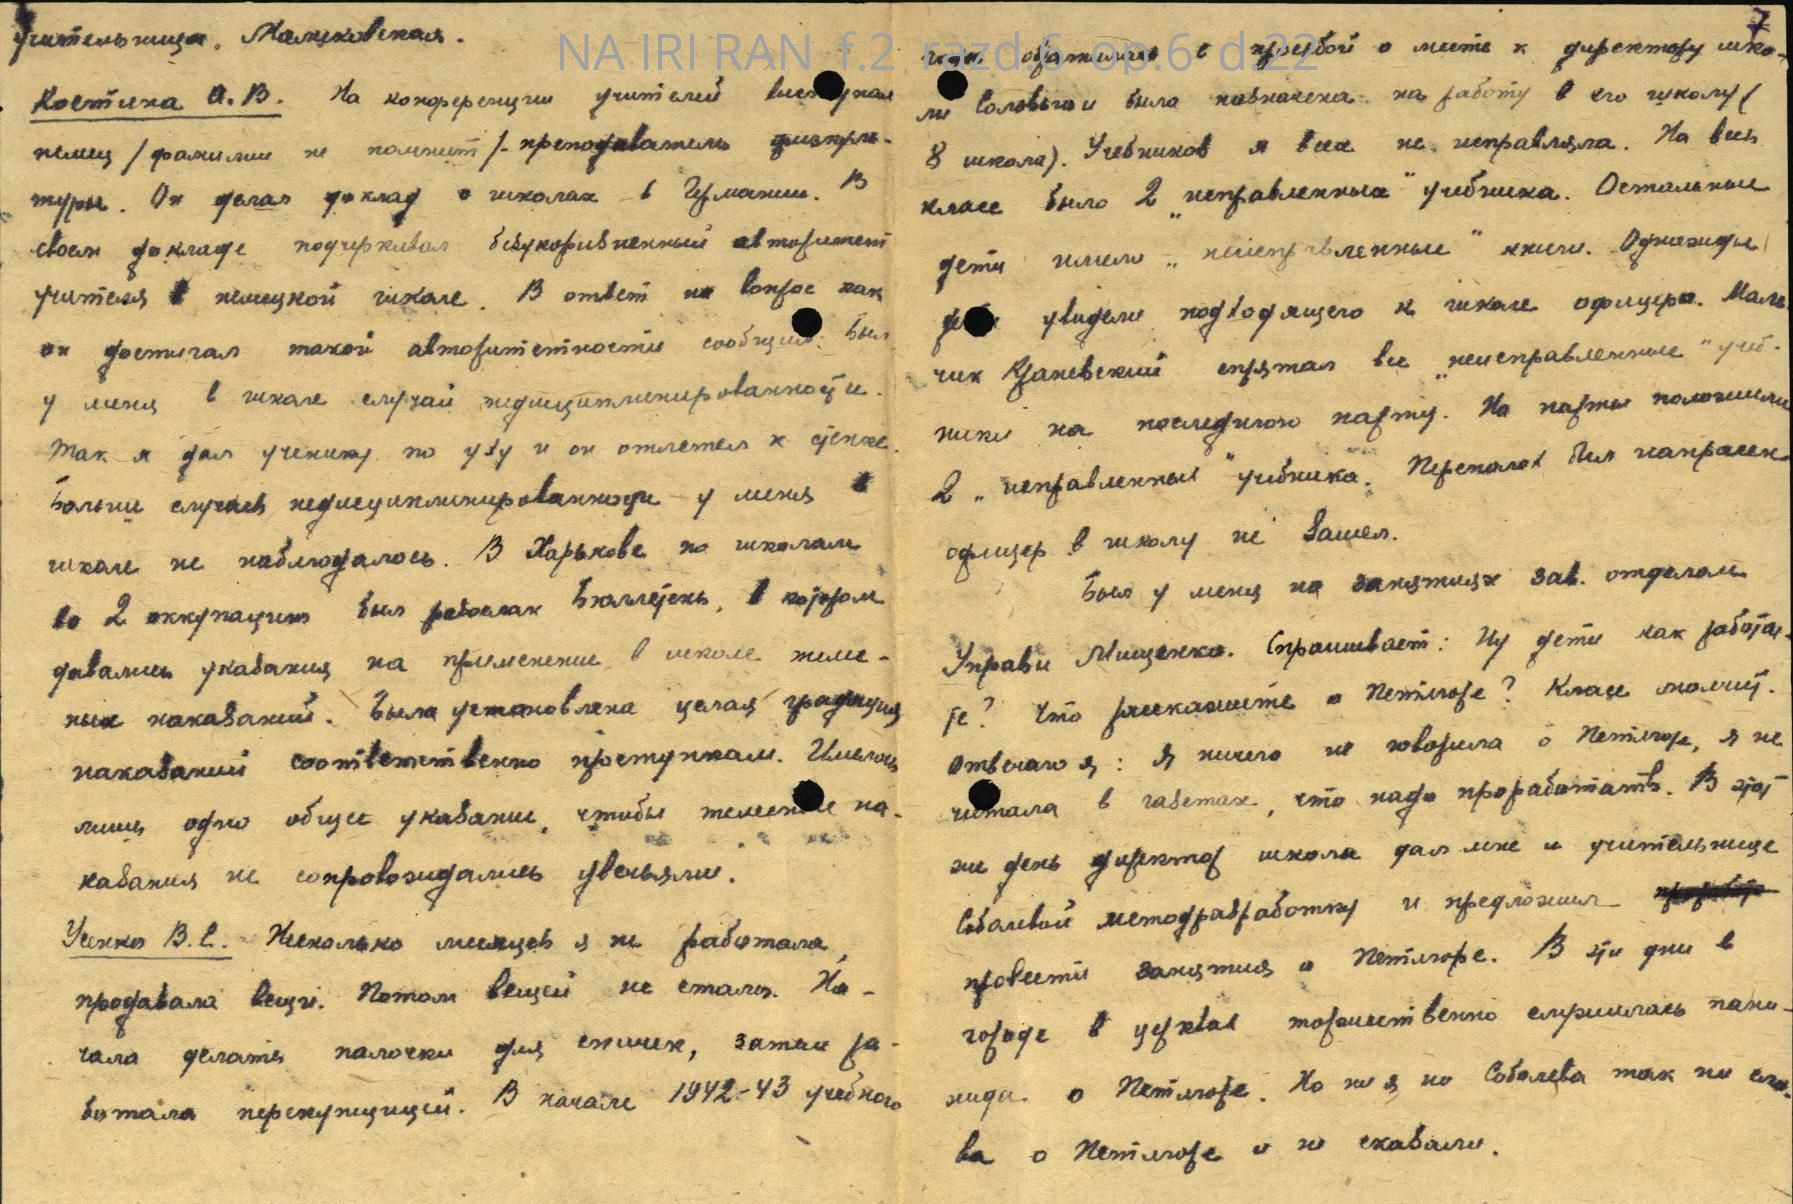 учительница. Малиховская.
Костина А.В. На конференции учителей выступал
немец /фамилии не помнит/- преподаватель физкуль-
туры. Он делал доклад о школах в Германии. В
своем докладе подчеркивал безукоризненный авторитет
учителя в немецкой школе. В ответ на вопрос как
он достигал такой авторитетности сообщил: Был
у меня в школе случай недисциплинированности.
Так я дал ученику по уху и он отлетел к стенке.
Больше случаев недисциплинированности у меня в
школе не наблюдалось. В Харькове по школам
во 2 оккупацию был разослан Бюллетень, в котором
давались указания на применение в школе телес-
ных наказаний. Была установлена целая градация
наказаний соответственно проступкам. Имелось
лишь одно общее указание, чтобы телесные на-
казания не сопровождались увечьями.
Усенко В.С. Несколько месяцев я не работала,
продавала вещи. Потом вещей не стало. На-
чала делать палочки для спичек, затем ра-
ботала перекупщицей. В начале 1942-43 учебного
NA IRI RAN f.2 razd.6 op.6 d.22
7
года обратилась с просьбой о месте к директору шко-
лы Соловьеву и была назначена на работу в его школу (
8 школа). Учебников я всех не исправляла. На весь
класс было 2 „исправленных" учебника. Остальные
дети имели „неисправленные" книги. Однажды
дети увидели подходящего к школе офицера. Маль
чик Краневский спрятал все „неисправленные" учеб-
ники на последнюю парту. На парты положили
2 „исправленных" учебника. Переполох был напрасен.
офицер в школу не зашел.
Был у меня на занятиях зав. отделом
Управы Мищенко. Спрашивает: Ну дети как работае-
те? Что расскажите о Петлюре? Класс молчит.
Отвечаю я: Я ничего не говорила о Петлюре, я не
читала в газетах, что надо проработать. В этот
же день директор школы дал мне и учительнице
Соболевой методразработку и предложил
провести занятия о Петлюре. В эти дни в
городе в церквах торжественно служилась пани-
хида о Петлюре. Но ни я ни Соболева так ни сло-
ва о Петлюре и не сказали.